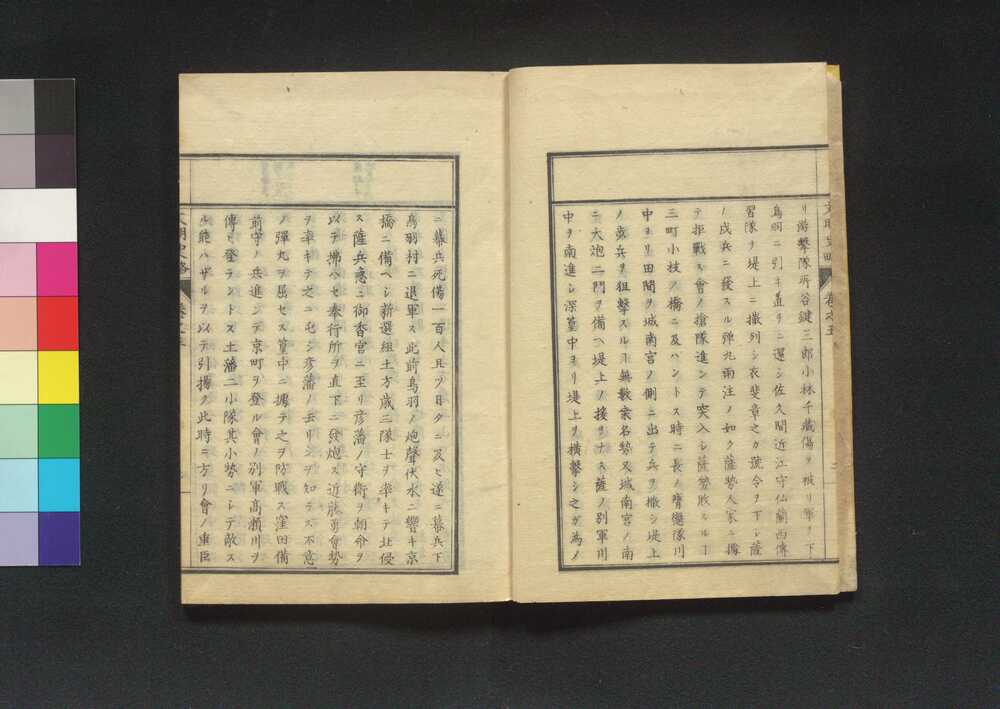 リ游擊隊所谷鍵三郎小林千藏傷ヲ被リ軍ヲ下
鳥羽ニ引キ置リニ還シ佐久間近江守仏蘭西傳
習隊ヲ堤上ニ撒列シ衣斐章之カ號令ヲ下シ薩
ノ戍兵ニ發スル弾丸雨注ノ如ク薩勢人家ニ據
テ拒戰ス會ノ槍隊進ンテ突入シ薩勢敗スルー
三町小枝ノ橋ニ及ハントス時ニ長ノ隊川
中ヨリ田間ヲ城南宮ノ側ニ出テ兵ヲ撒シ堤上
ノ兵ヲ狙擊スルー無數桒名勢又城南宮ノ南
ニ大炮二門ヲ備ヘ堤上ノ接ヲナス薩ノ別軍川
中ヲ南進シ深篁中ヨリ堤上ヲ横擊シ之カ為メ
ニ幕兵死傷一百人且ツ日クニ及ヒ遂ニ幕兵下
鳥羽村ニ退軍ス此前鳥羽ノ炮聲伏水ニ響キ京
橋ニ備ヘシ新選組土方歳三隊士ヲ率キテ北侵
ス薩兵惑ニ御香宮ニ至リ彦藩ノ守衛ヲ朝命ヲ
以テ掃ハセ奉行所ヲ直下ニ發炮ス近藤勇會勢
ヲ率キテ之ニ屯シ彦藩ノ去リシヲ知ラス不意
ノ彈丸ヲ屈セス篁中ニ據テ之ヲ防戰ス窪田備
前守ノ兵進ンテ京町ヲ登ル會ノ別軍髙瀬川ヲ
傳ヒ登ラントス土藩二小隊其小勢ニシテ敵ス
ル能ハザルヲ以テ引揚ク此時ニ方リ會ノ重臣
文明史略
卷之五